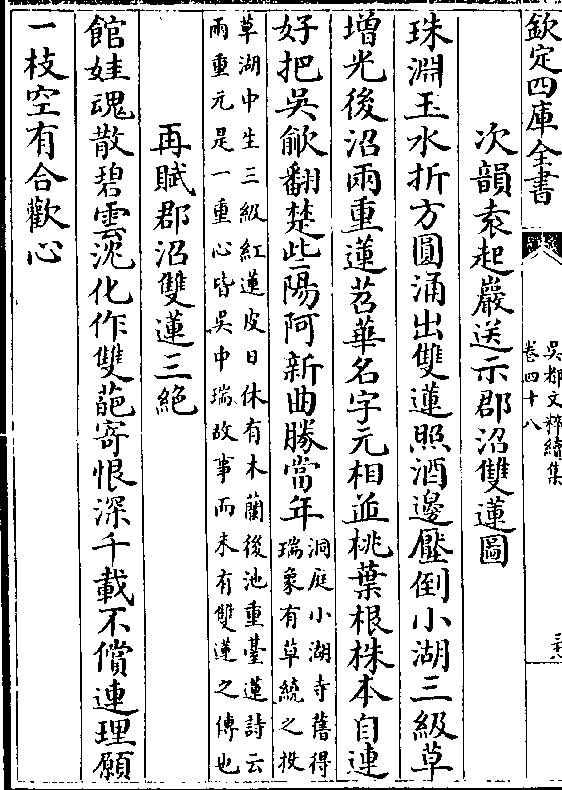 欽定四庫全書
吳都文粹續集
卷四十八
次韻袁起巖送示郡沼雙蓮圖
珠淵玉水折方圓涌出雙蓮照酒邊壓倒小湖三級草
增光後沼兩重蓮苕華名字元相並桃葉根株本自連
好把吳歈翻楚些陽阿新曲勝當年
洞庭小湖寺舊得
瑞象有草繞之投
草湖中生三級紅蓮皮日休有木蘭後池重臺蓮詩云
兩重元是一重心皆吳中瑞故事而未有雙蓮之傳也
再賦郡沼雙蓮三絶
館娃魂散碧雲沈化作雙葩寄恨深千載不償連理願
一枝空有合歡心